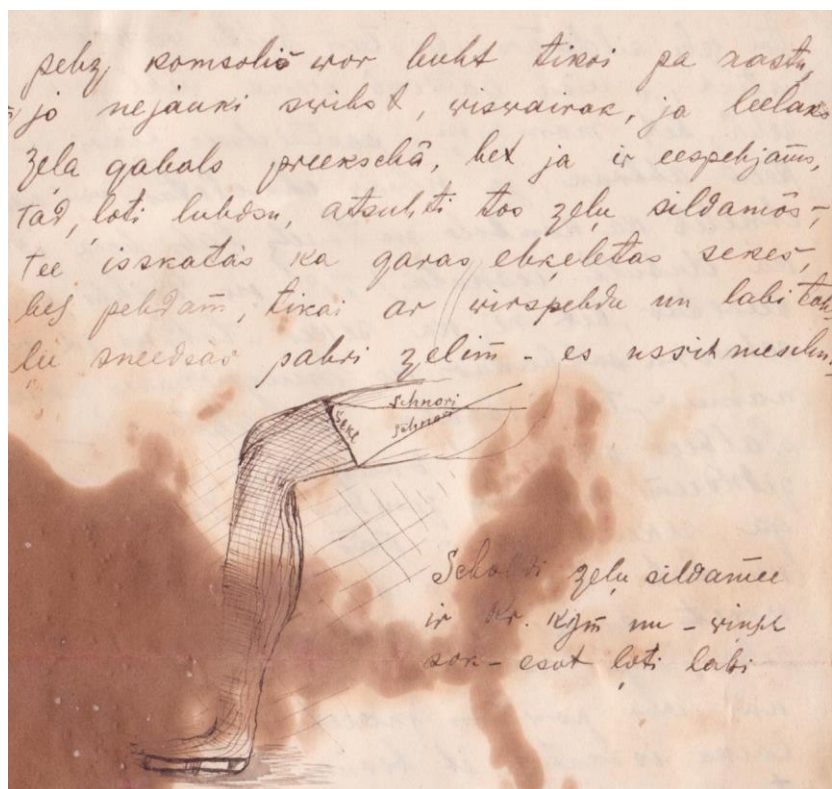 pehz komsoliš wor buht tikai pa rastu,
jo nejauki swihst, wiswairak, ja leelaks
zeļa gabals preekschâ, bet ja ir eespehjams,
tad, loti luhdsu, atsuhti tos zeļu sildamōs,
tee isskatās ka garas ehkeletas sekes,
bes pehdam̄, tikai ar wirspehdu un labi
sneedsās pahri zelim̄ - es ussihmeschu,
schnori
schnori
seke
Scholdi zeļu sildam̄ee
ir Kr. kgm̄ un -
sok - esot ļoti labi